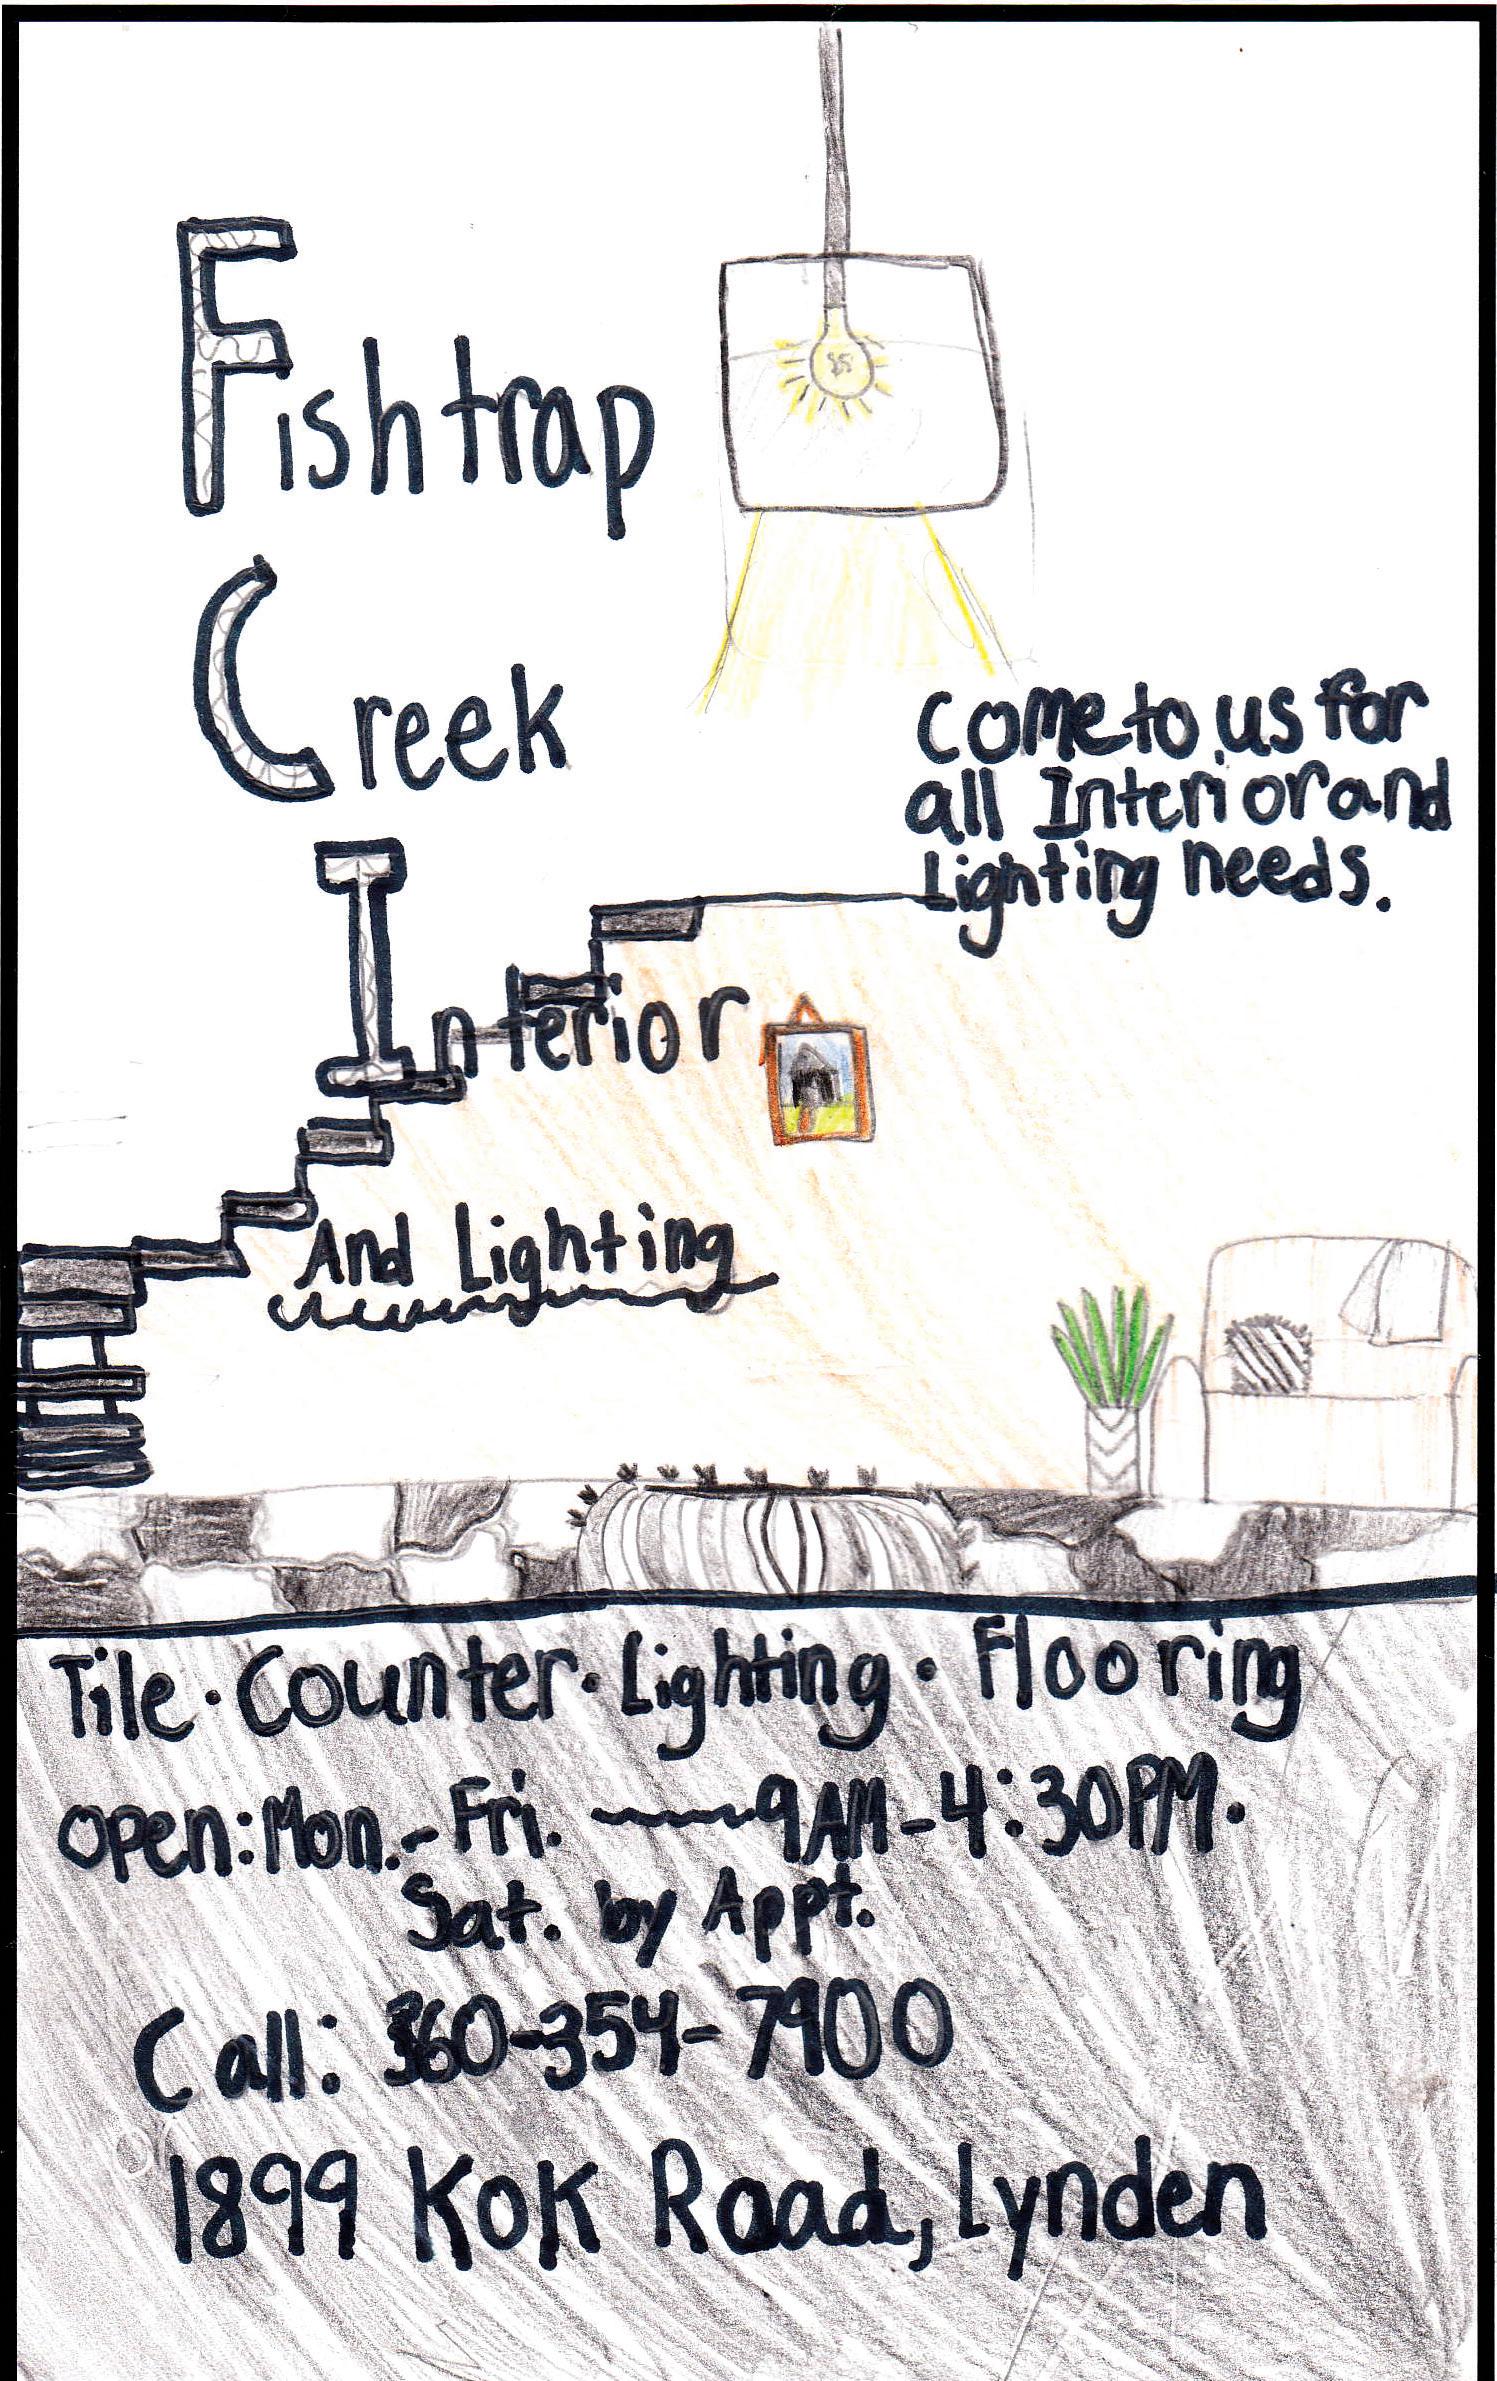 Fishtrap
Creek
Interior
And Lighting
Come to us for
all Interior and
Lighting needs.
Tile · Counter · Lighting · Flooring
Open: Mon. - Fri. 9AM - 4:30PM.
Sat. by Appt.
Call: 360-354-7900
1899 Kok Road, Lynden